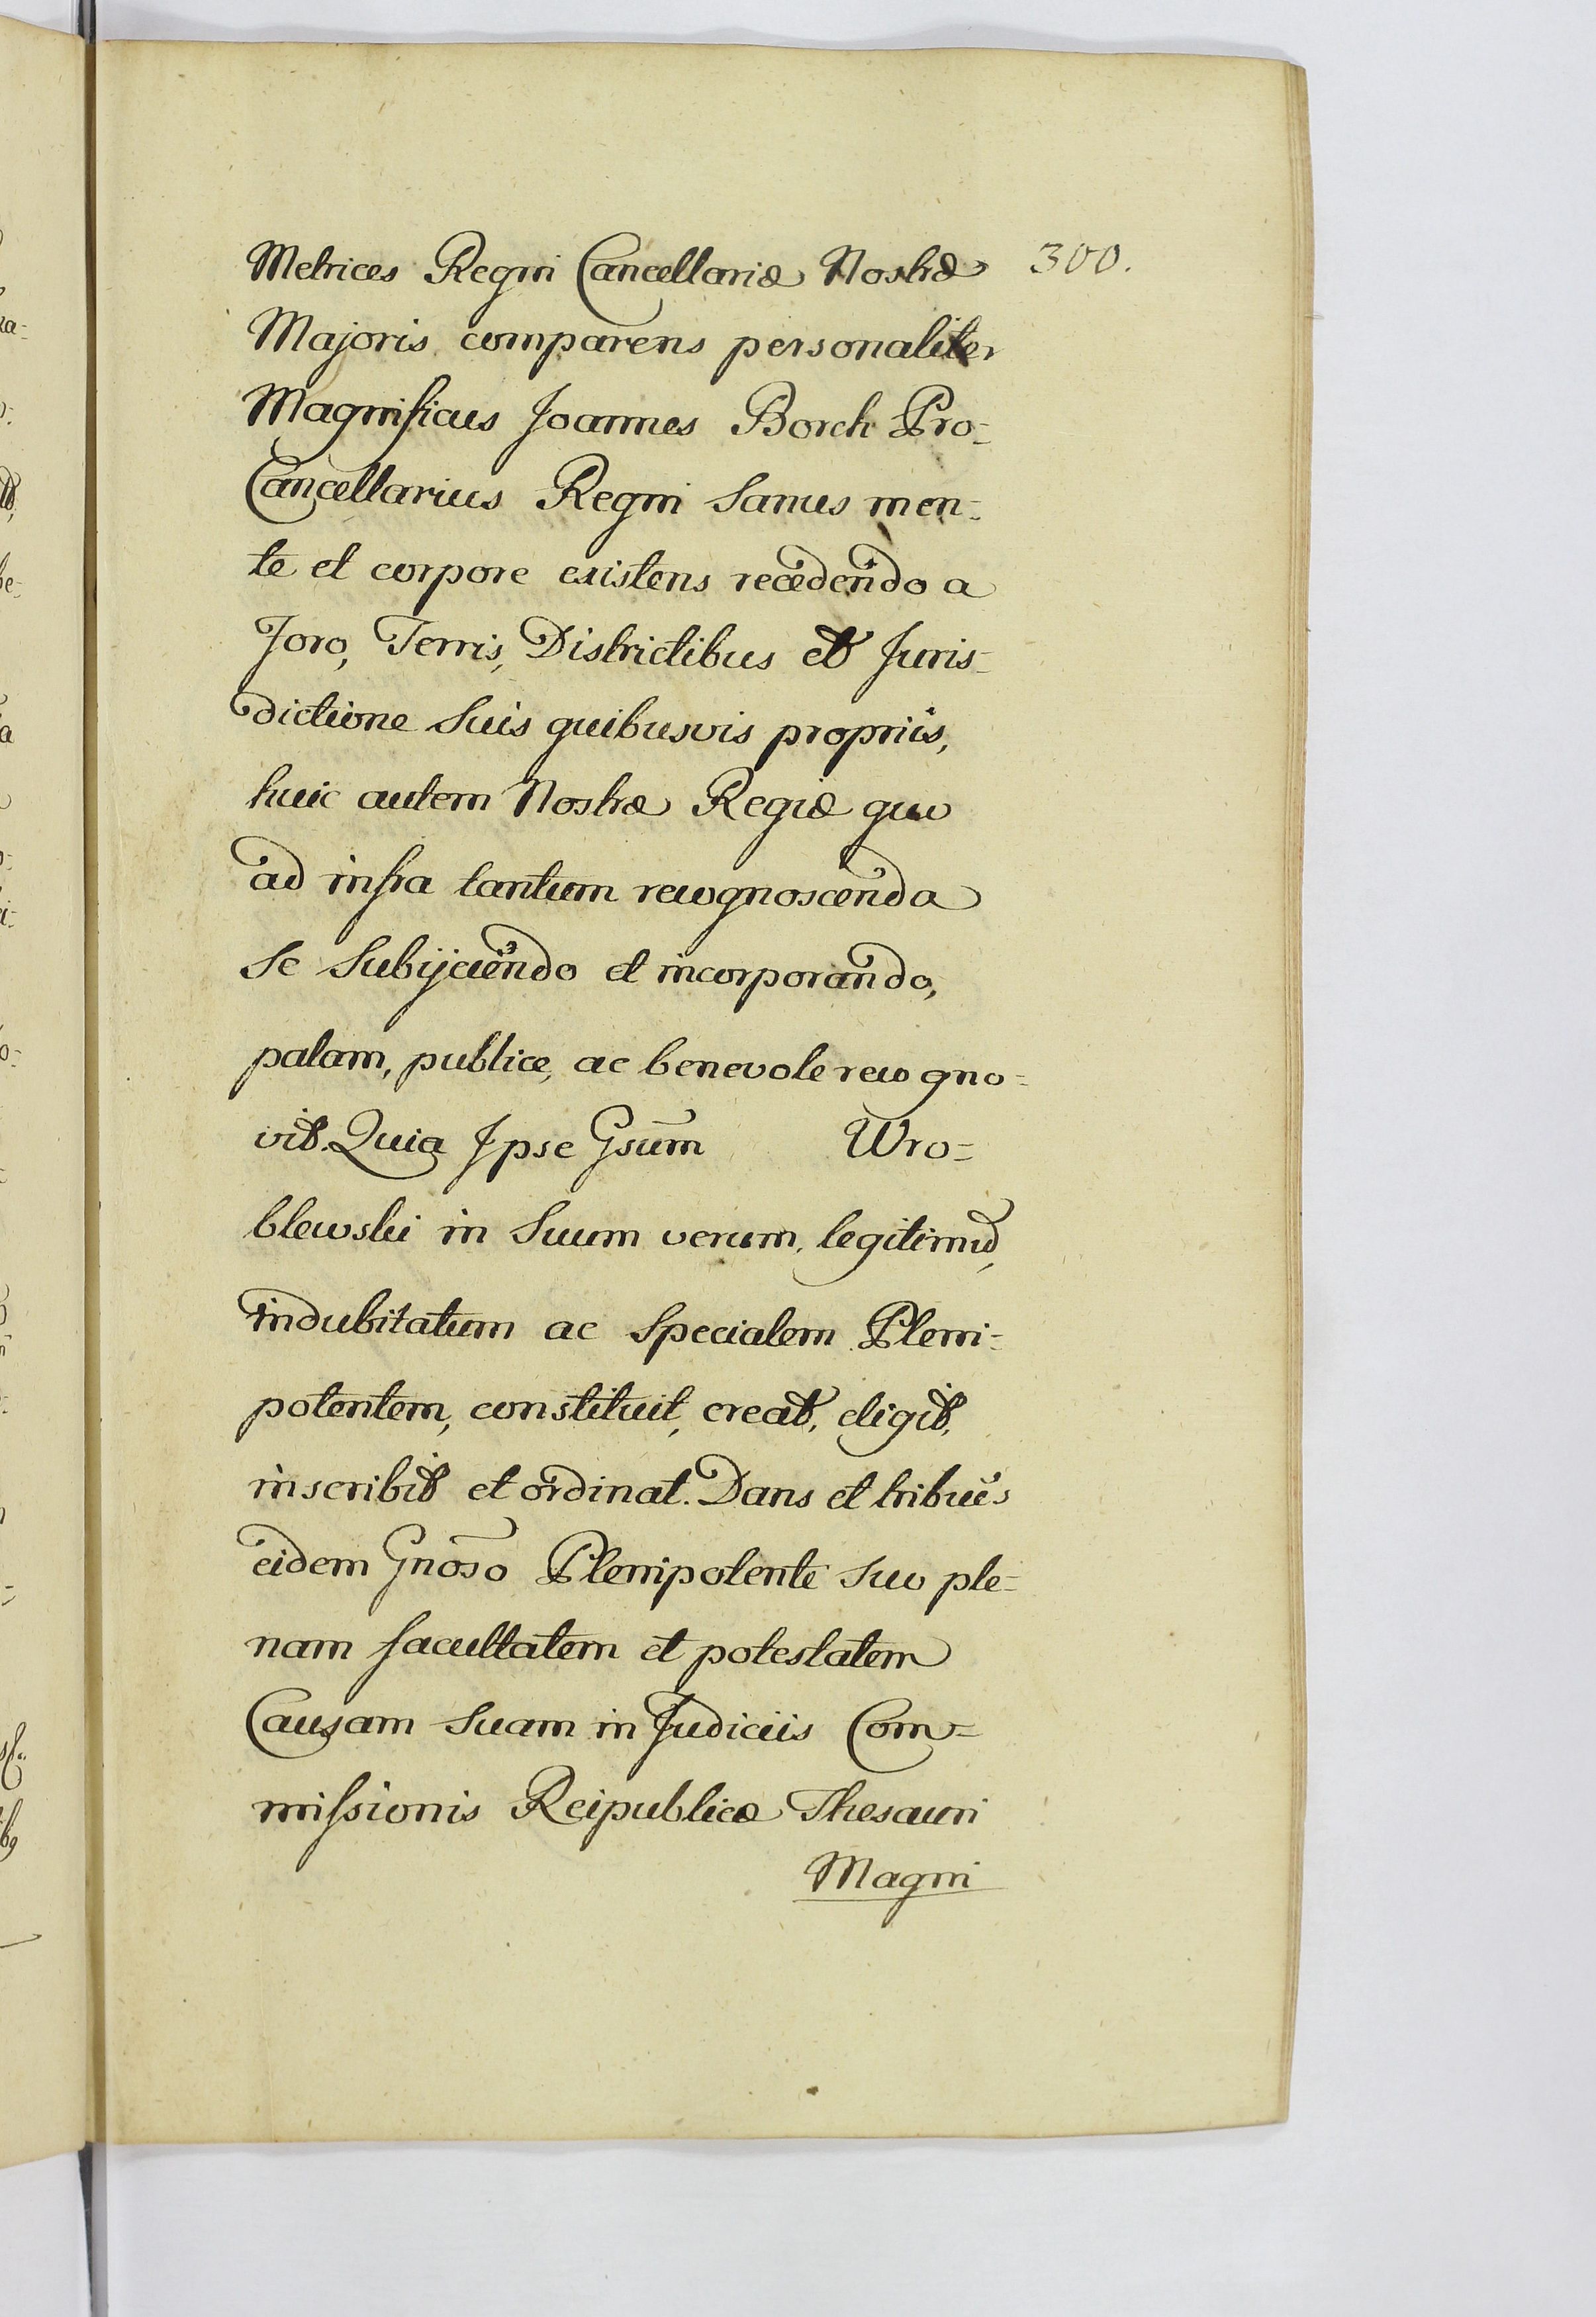 Metrices Regni Cancellariæ Nostræ 300.
Majoris comparens personaliter
Magnificus Joannes Borch Pro=
Cancellarius Regni Sanus men=
te et corpore existens recedendo a
Foro, Terris, Districtibus et Juris=
dictione Suis quibusvis propriis,
huic autem Nostræ Regiæ quo
ad infra tantum recognoscenda
se Subijciendo et incorporando,
palam, publice, ac benevole recogno=
vit. Quia Ipse Gsum̄ Wro=
blewski in Suum verum, legitimū,
indubitatum ac Specialem Pleni=
potentem, constituit, creat, eligit,
inscribit et ordinat. Dans et tribuēs
eidem Gnos̄o Plenipotente Suo ple=
nam facultatem et potestatem
Causam Suam in Judiciis Com=
missionis Reipublicæ Thesauri
Magni